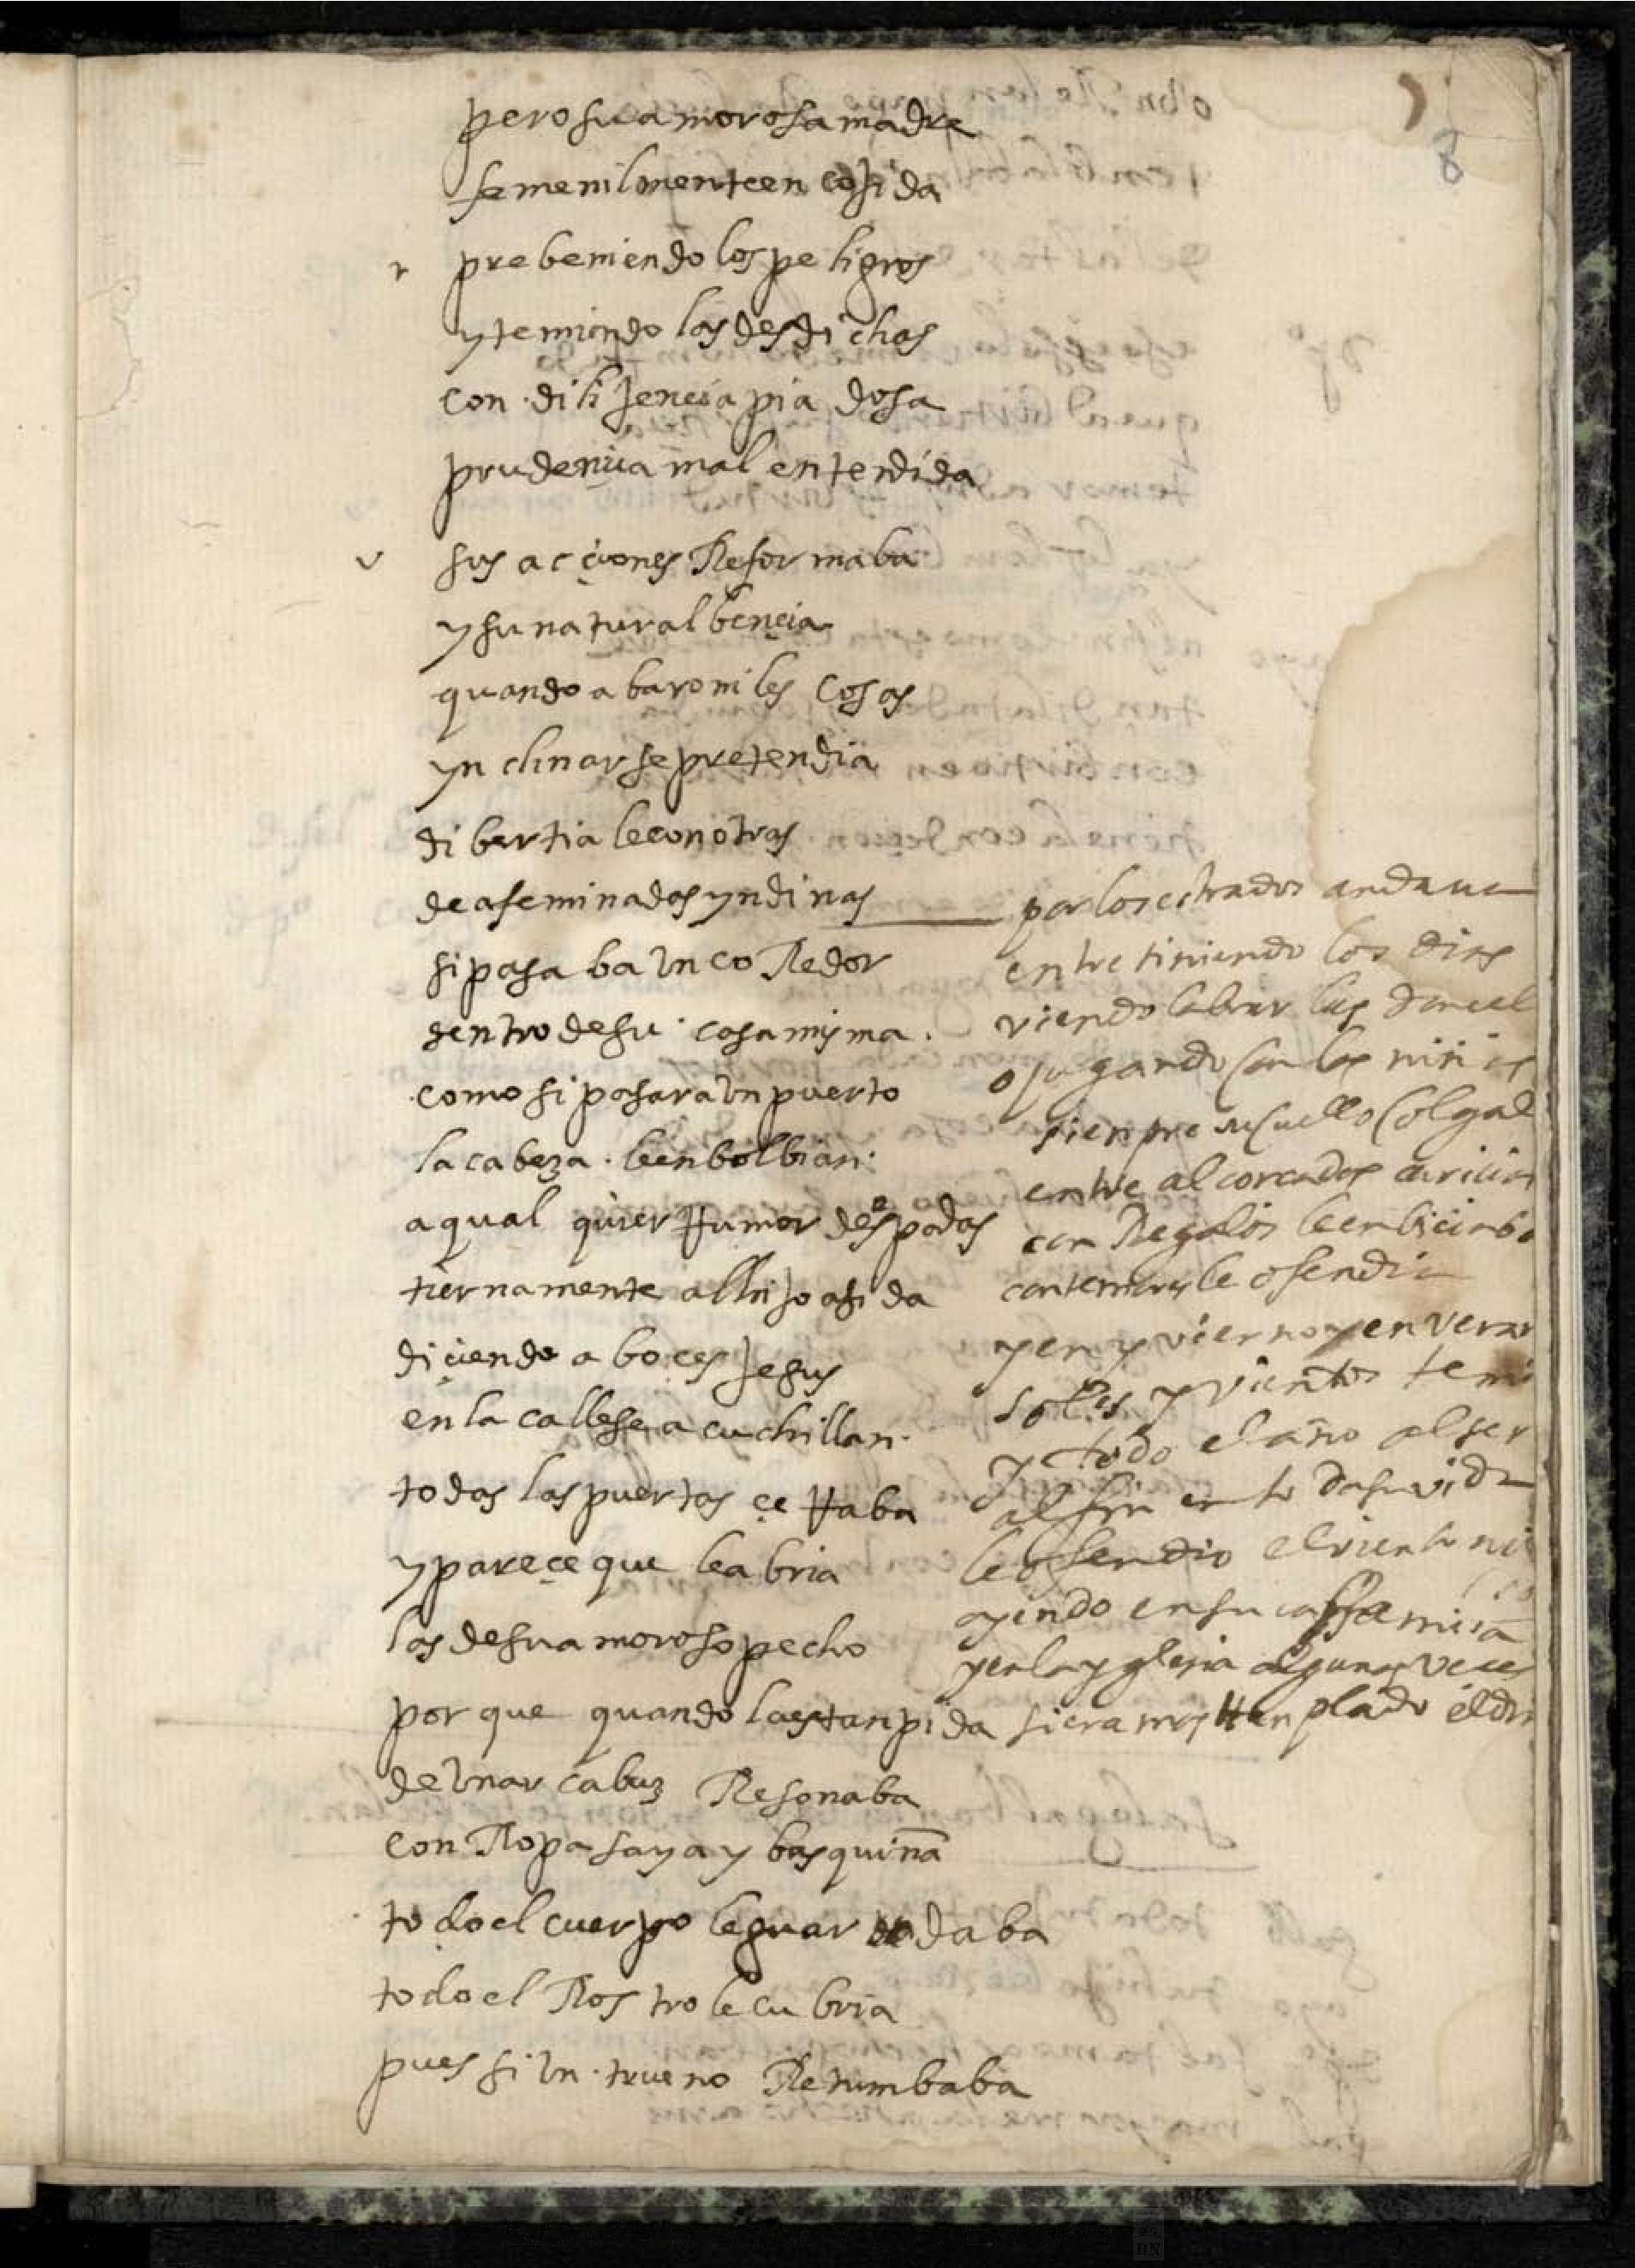 8
pero su amorosa madre
femenilmente encojida
prebeniendo los peligros
y temiendo las desdichas
con dilijencia piadosa
prudencia mal entendida
sus acçiones Reformaba
y su natural bençia
quando a baroniles cosas
ynclinarse pretendia
dibertiale con otras
de afeminados yndinas
si pasaba un coRedor
dentro de su casa misma
como si pasara un puerto
la cabeza le enbolbian
a qual quier Rumor de espadas
tiernamente al hijo asida
diçiendo a boçes Jesus
en la calle se acuchillan
todas las puertas çeRaba
y pareçe que le abria
las de su amoroso pecho
por que quando la estanpida
de un arcabuz Resonaba
con Ropa saya y basquiña
todo el cuerpo le guardaba
todo el Rostro le cubria
pues si un trueno Retumbaba
por los estrados andaua
entretiniendo los dias
viendo labrar las doncel
o jugando con las niñas
sienpre su cuello colgad
entre alcorcados
con Regalos le
con temores le ofendia
y en yvierno y en veran
soles y vientos temi
y todo el año al ser
al fin en toda su vida
le ofendio el viento ni
oyendo en su missa
y en la yglesia algunas veces
si era muy tenplado el dia